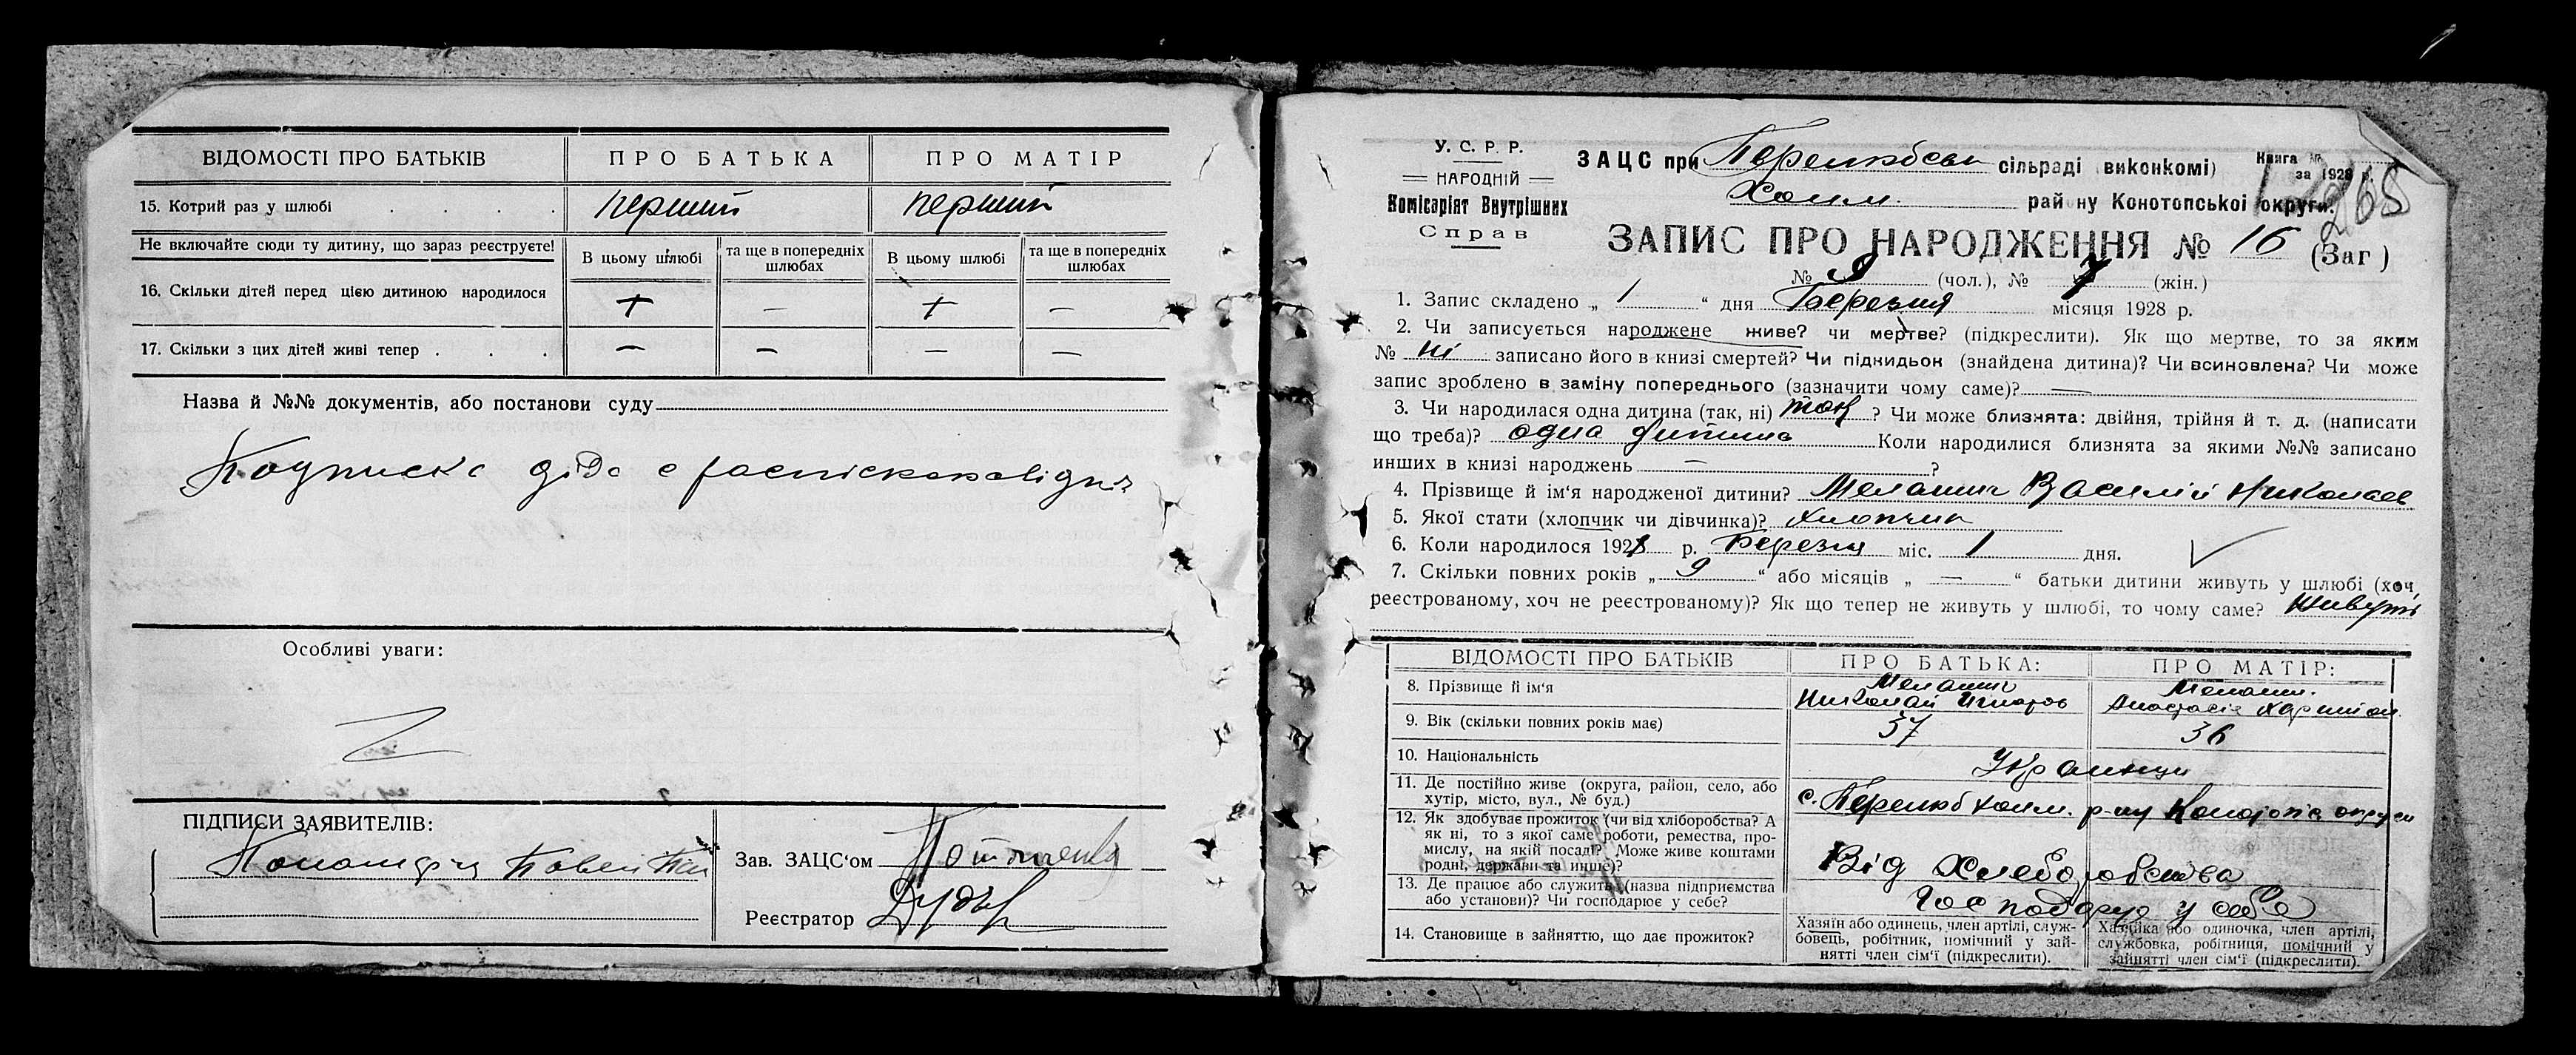 ВІДОМОСТІ ПРО БАТЬКІВ ПРО БАТЬКА ПРО МАТІР
15. Котрий раз у шлюбі . . . . перший перший
Не включайте сюди ту дитину, що зараз реєструєте! В цьому шлюбі та ще в попередніх шлюбах В цьому шлюбі та ще в попередніх шлюбах
16. Скільки дітей перед цією дитиною народилося + — + —
17. Скільки з цих дітей живі тепер . . . — — — —
Назва й №№ документів, або постанови суду
Особливі уваги:
ПІДПИСИ ЗАЯВИТЕЛІВ:
Зав. ЗАЦС'ом
Реєстратор
У. С. Р. Р.
НАРОДНІЙ
Комісаріят Внутрішних
Справ
ЗАЦС при сільраді (виконкомі)
Холм. району Конотопської округи.
Книга №
за 1928 р.
265
ЗАПИС ПРО НАРОДЖЕННЯ № 16 (Заг)
№ 9 (чол.), № 7 (жін.)
1. Запис складено „ 1 “ дня Березня місяця 1928 р.
2. Чи записується народжене живе? чи мертве? (підкреслити). Як що мертве, то за яким
№ ні записано його в книзі смертей? Чи підкидьок (знайдена дитина)? Чи всиновлена? Чи може
запис зроблено в заміну попереднього (зазначити чому саме)? —
3. Чи народилася одна дитина (так, ні) так ? Чи може близнята: двійня, трійня й т. д. (написати
що треба)? одна дитина Коли народилися близнята за якими №№ записано
инших в книзі народжень — ?
4. Прізвище й ім'я народженої дитини? Василій Николаев
5. Якої стати (хлопчик чи дівчинка)? хлопчик
6. Коли народилося 1928 р. Березня міс. 1 дня.
7. Скільки повних років „ 9 “ або місяців „ — “ батьки дитини живуть у шлюбі (хоч,
реєстрованому, хоч не реєстрованому)? Як що тепер не живуть у шлюбі, то чому саме? Живуть
ВІДОМОСТІ ПРО БАТЬКІВ ПРО БАТЬКА: ПРО МАТІР:
8. Прізвище й ім'я Николай Анастасія
9. Вік (скільки повних років має) 37 36
10. Національність Українци
11. Де постійно живе (округа, район, село, або
хутір, місто, вул., № буд.) с. р-ну округи
12. Як здобуває прожиток (чи від хліборобства? А
як ні, то з якої саме роботи, ремества, про-
мислу, на якій посаді? Може живе коштами
родні, держави та инше)? Від Хлеборобства
13. Де працює або служить (назва підприємства
або установи)? Чи господарює у себе? Господарює у себе
14. Становище в зайняттю, що дає прожиток?
Хазяїн або одинець, член артілі, служ-
бовець, робітник, помічний у зай-
нятті член сім'ї (підкреслити).
Хазяйка або одиночка, член артілі,
службовка, робітниця, помічний у
зайнятті член сім'ї (підкреслити).